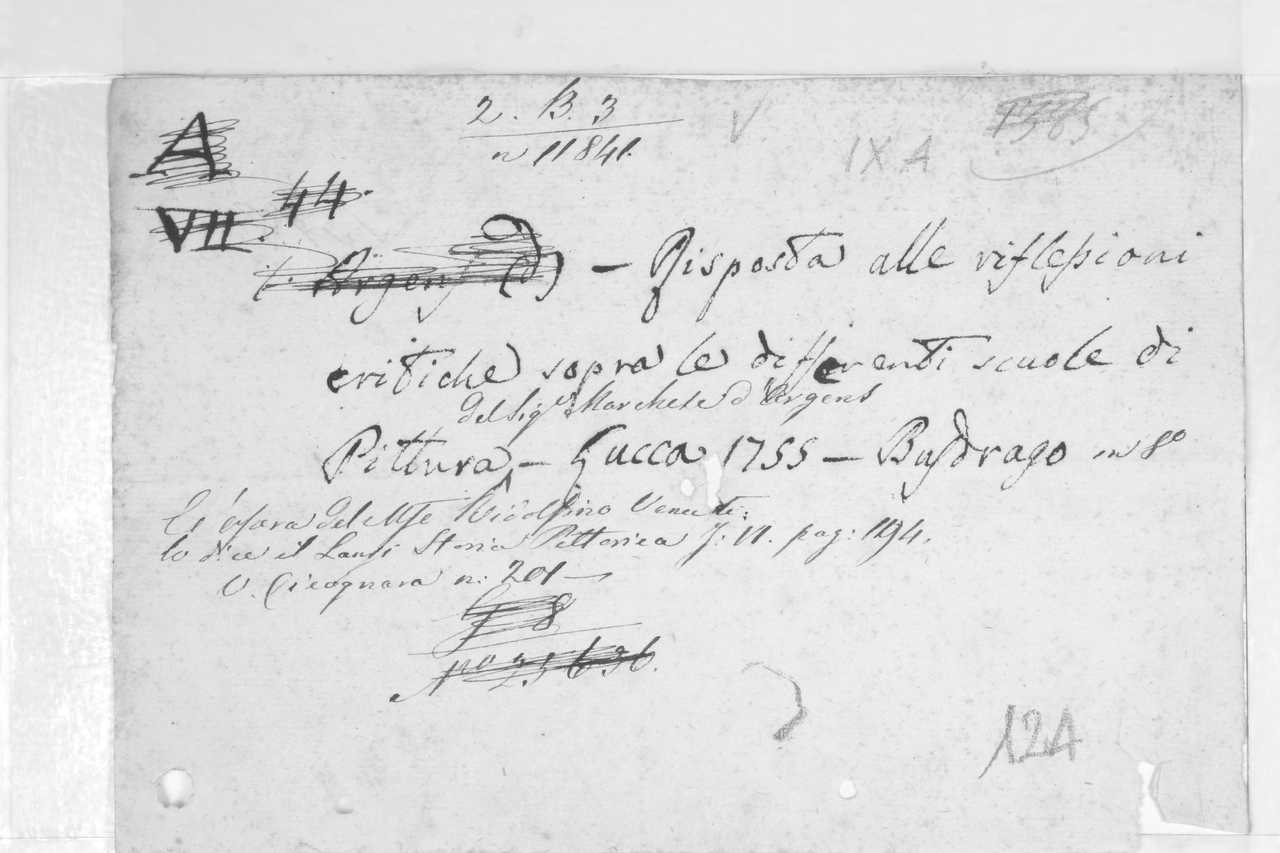 2. B. 3
n 11841.
V.
IX A
A
VII. 44.
Argens (d') – Risposta alle riflessioni
critiche sopra le differenti scuole di
del Sigr. Marchese d'Argens
Pittura, – Lucca 1755 – Busdrago in 8º
del Mse Ridolfino Venuti:
lo dice il Lanzi Storia Pittorica T. VI. pag: 1194.
V. Cicognara n. 201 –
8
Nº 25636.
124